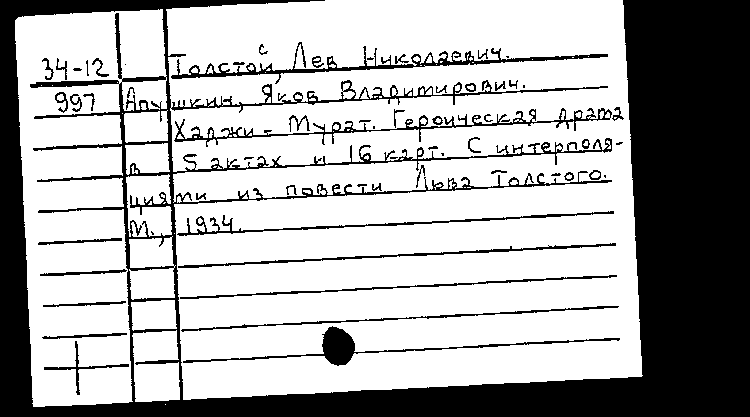 34-12 Толстой, Лев Николаевич.
997 Апушкин, Яков Владимирович.
Хаджи-Мурат. Героическая драма
в 5 актах и 16 карт. С интерполя-
циями из повести Льва Толстого.
М., 1934.